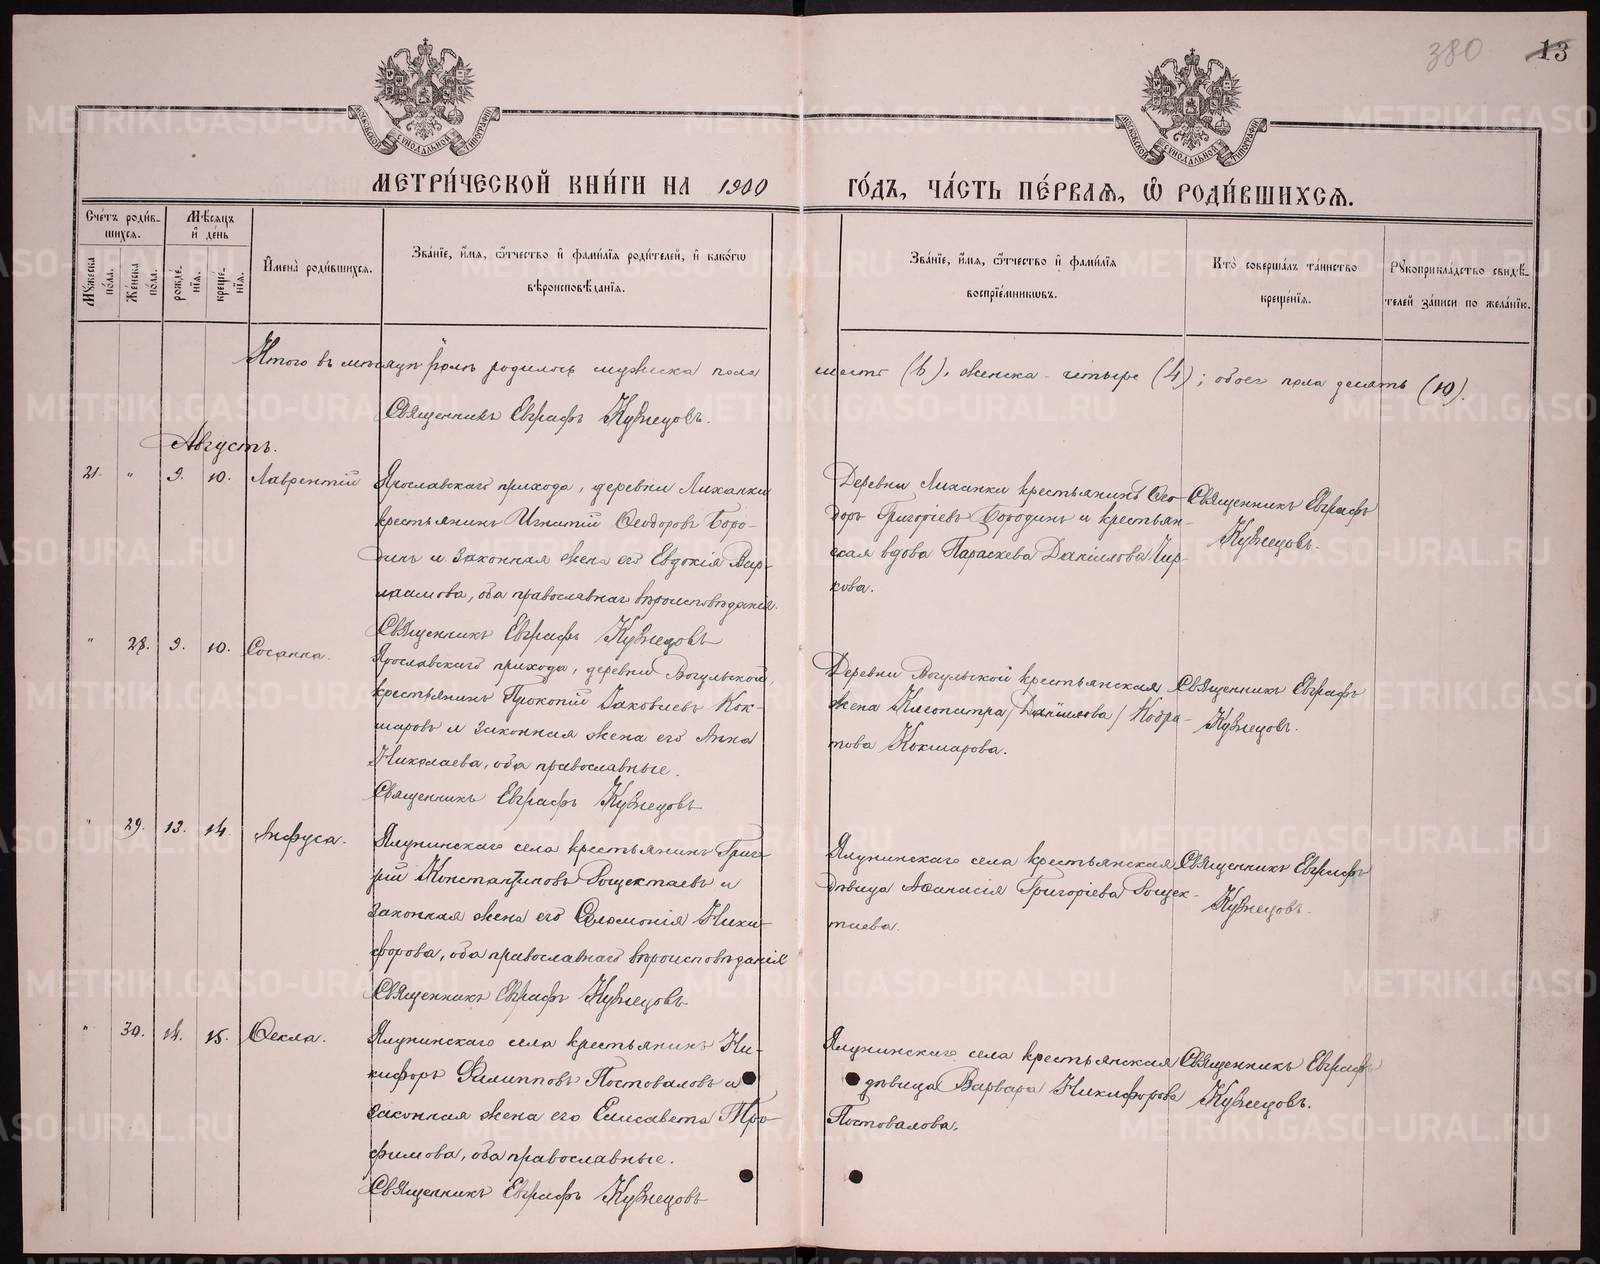 380 13
МОСКОВСКОЙ СѴНОДАЛЬНОЙ ТИПОГРАФІИ
МОСКОВСКОЙ СѴНОДАЛЬНОЙ ТИПОГРАФІИ
МЕТРИ́ЧЕСКОЙ КНИ́ГИ НА 1900 ГО́ДЪ, ЧА́СТЬ ПЕ́РВАѦ, Ѽ РОДИ́ВШИХСѦ.
Сче́тъ роди́в-
шихсѧ.
Мѣ́сѧцъ
и҆ де́нь
Мꙋ́жеска
по́ла.
Же́нска
по́ла.
рожде́-
нїѧ.
креще́-
нїѧ.
И҆мена̀ роди́вшихсѧ.
Зва́нїе, и҆́мѧ, ѻ҆́тчество и҆ фами́лїѧ роди́телей, и҆ како́гѡ
вѣроисповѣ́данїѧ.
Зва́нїе, и҆́мѧ, ѻ҆́тчество и҆ фами́лїѧ
воспрїе́мникѡвъ.
Кто̀ соверша́лъ та́инство
креще́нїѧ.
Рꙋкоприкла́дство свидѣ́-
телей за́писи по жела́нїю.
Итого въ мѣсяцѣ Іюлѣ родилось мужеска пола шесть (6), женска – четыре (4); обоего пола десять (10).
Священникъ Евграфъ Кузнецовъ.
Августъ.
21. " 9. 10. Лаврентій
Ярославскаго прихода, деревни Лиханки
крестьянинъ Игнатій Ѳеодоровъ Боро-
динъ и законная жена его Евдокія Вар-
лаамова, оба православнаго вѣроисповѣданія.
Священникъ Евграфъ Кузнецовъ
Деревни Лиханки крестьянинъ Ѳео-
доръ Григоріевъ Бородинъ и крестьян-
ская вдова Параскева Даніилова Чир-
кова.
Священникъ Евграфъ
Кузнецовъ.
" 28. 9. 10. Сосанна.
Ярославскаго прихода, деревни Вогульской,
крестьянинъ Прокопій Іаковлевъ Кок-
шаровъ и законная жена его Анна
Николаева, оба православные.
Священникъ Евграфъ Кузнецовъ
Деревни Вогульской крестьянская
жена Клеопатра /Даніилова/ Кодра-
това Кокшарова.
Священникъ Евграфъ
Кузнецовъ.
" 29. 13. 14. Анфуса.
Ялунинскаго села крестьянинъ Григо-
рій Константиновъ Рощектаевъ и
законная жена его Соломонія Ники-
форова, оба православнаго вѣроисповѣданія
Священникъ Евграфъ Кузнецовъ
Ялунинскаго села крестьянская
дѣвица Аѳанасія Григоріева Рощек-
таева.
Священникъ Евграфъ
Кузнецовъ.
" 30. 14. 15. Ѳекла.
Ялунинскаго села крестьянинъ Ни-
кифоръ Филипповъ Постоваловъ и
законная жена его Елисавета Тро-
фимова, оба православные.
Священникъ Евграфъ Кузнецовъ
Ялунинскаго села крестьянская
дѣвица Варвара Никифорова
Постовалова.
Священникъ Евграфъ
Кузнецовъ.
METRIKI.GASO-URAL.RU